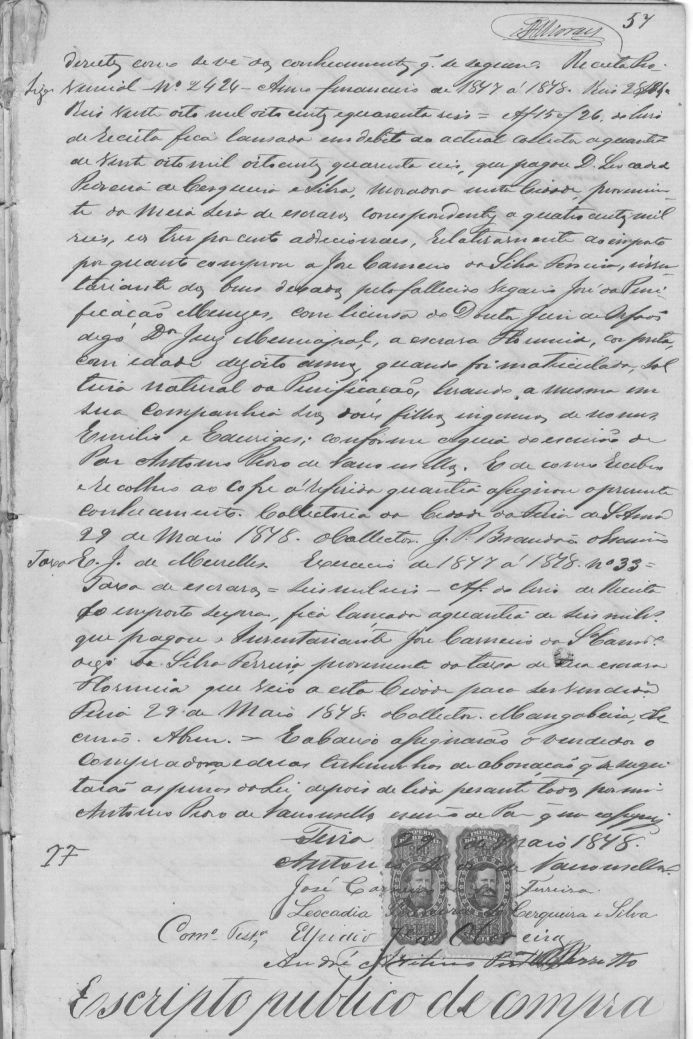 57
direitos como se vê dos conhecimentos q. se seguem. Receita Pro-
Siza
vincial Nº 2424 - Anno financeiro de 1877 á 1878. Reis
Reis vinte oito mil oito centos e quarenta seis = Af 15 do livro
de receita fica lansada em debito do actual collector a quantia
de vinte oito mil oitocentos quarenta seis, que pagou D. Leocadia
Pereira de Cerqueira e Silva, moradora nesta Cidade, provenien-
te da meia siza de escravos correspondente a quatro centos mil
reis, e os tres por cento addicionaes, relativamente ao imposto
por quanto comprou a José Carneiro da Silva Ferreira, inven-
tariante dos bens deixados pelo fallecido José da Puri-
ficação Menezes, com licensa do Doutor Juiz de Orfãos
digo Dr. Juiz Municipal, a escrava Florinda, cor preta,
com idade dezoito annos, quando foi matriculada, sol-
teira natural da Purificação, levando a mesma em
sua companhia seus dois filhos ingenuos de nomes
Emilio e Eduviges; conforme a guia do escrivão de
Paz Antonio Pedro de Vasconsellos. E de como recebeo
e recolheo ao cofre a referida quantia assignou o presente
conhecimento. Collectoria da Cidade da Feira de S. Anna
29 de Maio 1878. O Collector J. P. Brandão o Escrivão
Taxa
E. J. de Meirelles. Exercicio de 1877 á 1878. nº 33 =
Taxa de escravos = seis mil reis - Af. do livro de receita
do imposto supra, fica lansada a quantia de seis mil rs.
que pagou o Inventariante José Carneiro da
digo da Silva Ferreira, proveniente da taxa de sua escrava
Florinda que veio a esta Cidade para ser vendida
Feira 29 de Maio 1878. O Collector. Mangabeira, Es-
crivão. = E abaixo assignarão o vendedor o
Comprador e duas testemunhas de abonação q se sugei-
tarão as penas da Lei, depois de lida perante todos, por mim
Antonio Pedro de Vasconsellos escrivão de Paz q me assignei
Feira 29 de Maio 1878.
Antonio Pedro de Vasconsellos
José Carneiro da Silva Ferreira
Leocadia Pereira de Cerqueira e Silva
Como Testas. Elpidio Oliveira
André
IMPERIO DO BRASIL
IMPERIO DO BRASIL
Escripto publico de compra